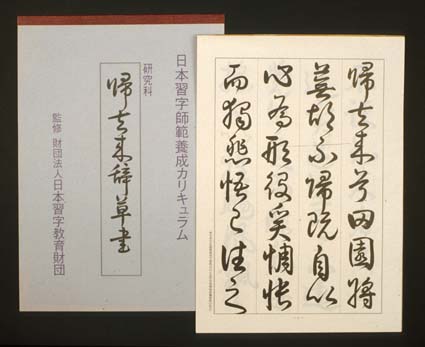 日本習字師範養成カリキュラム
研究科
帰去来辞草書
監修 財団法人日本習字教育財団
帰去来兮田園将
蕪胡不帰既自以
心為形役奚惆悵
而獨悲悟已往之